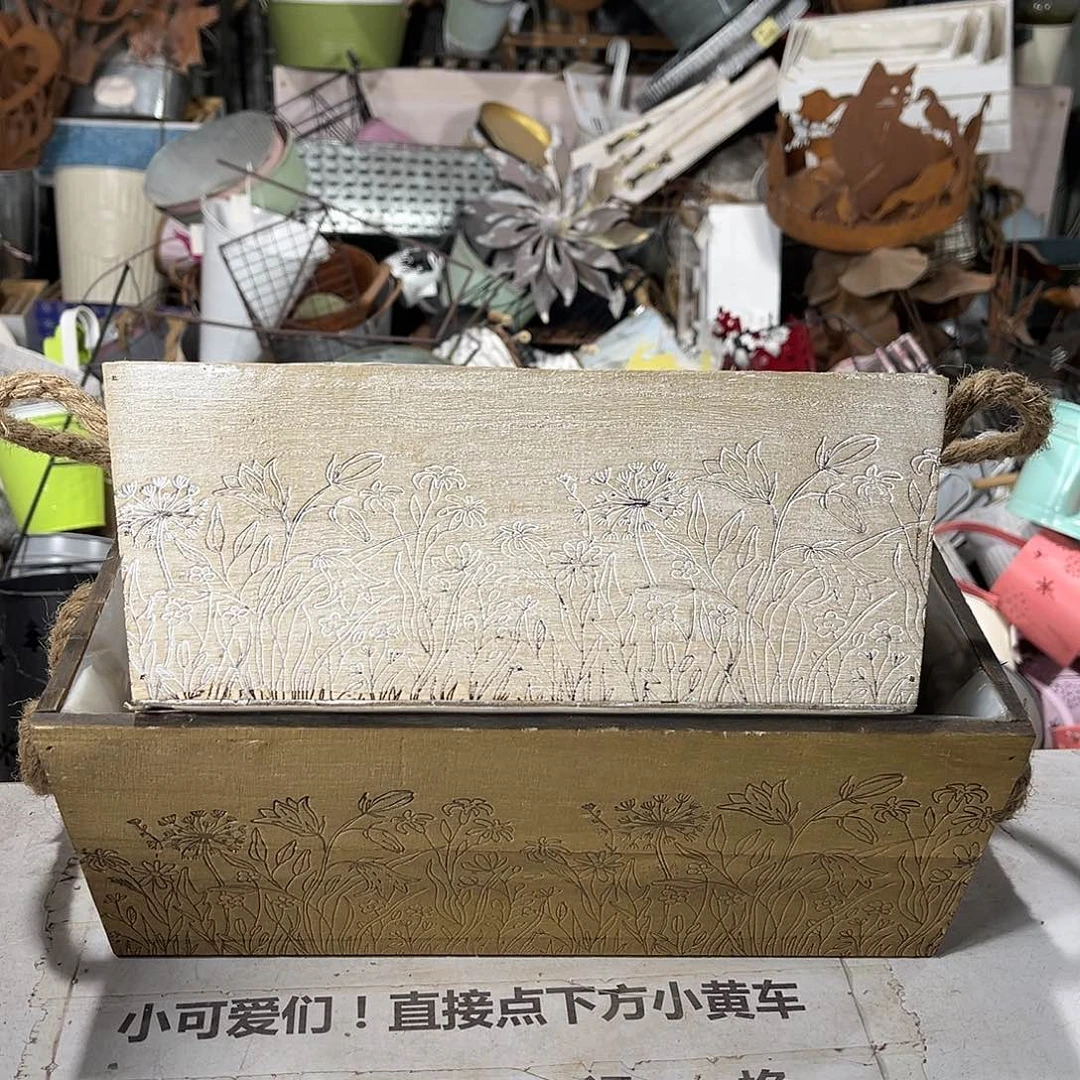 小可爱们！直接点下方小黄车